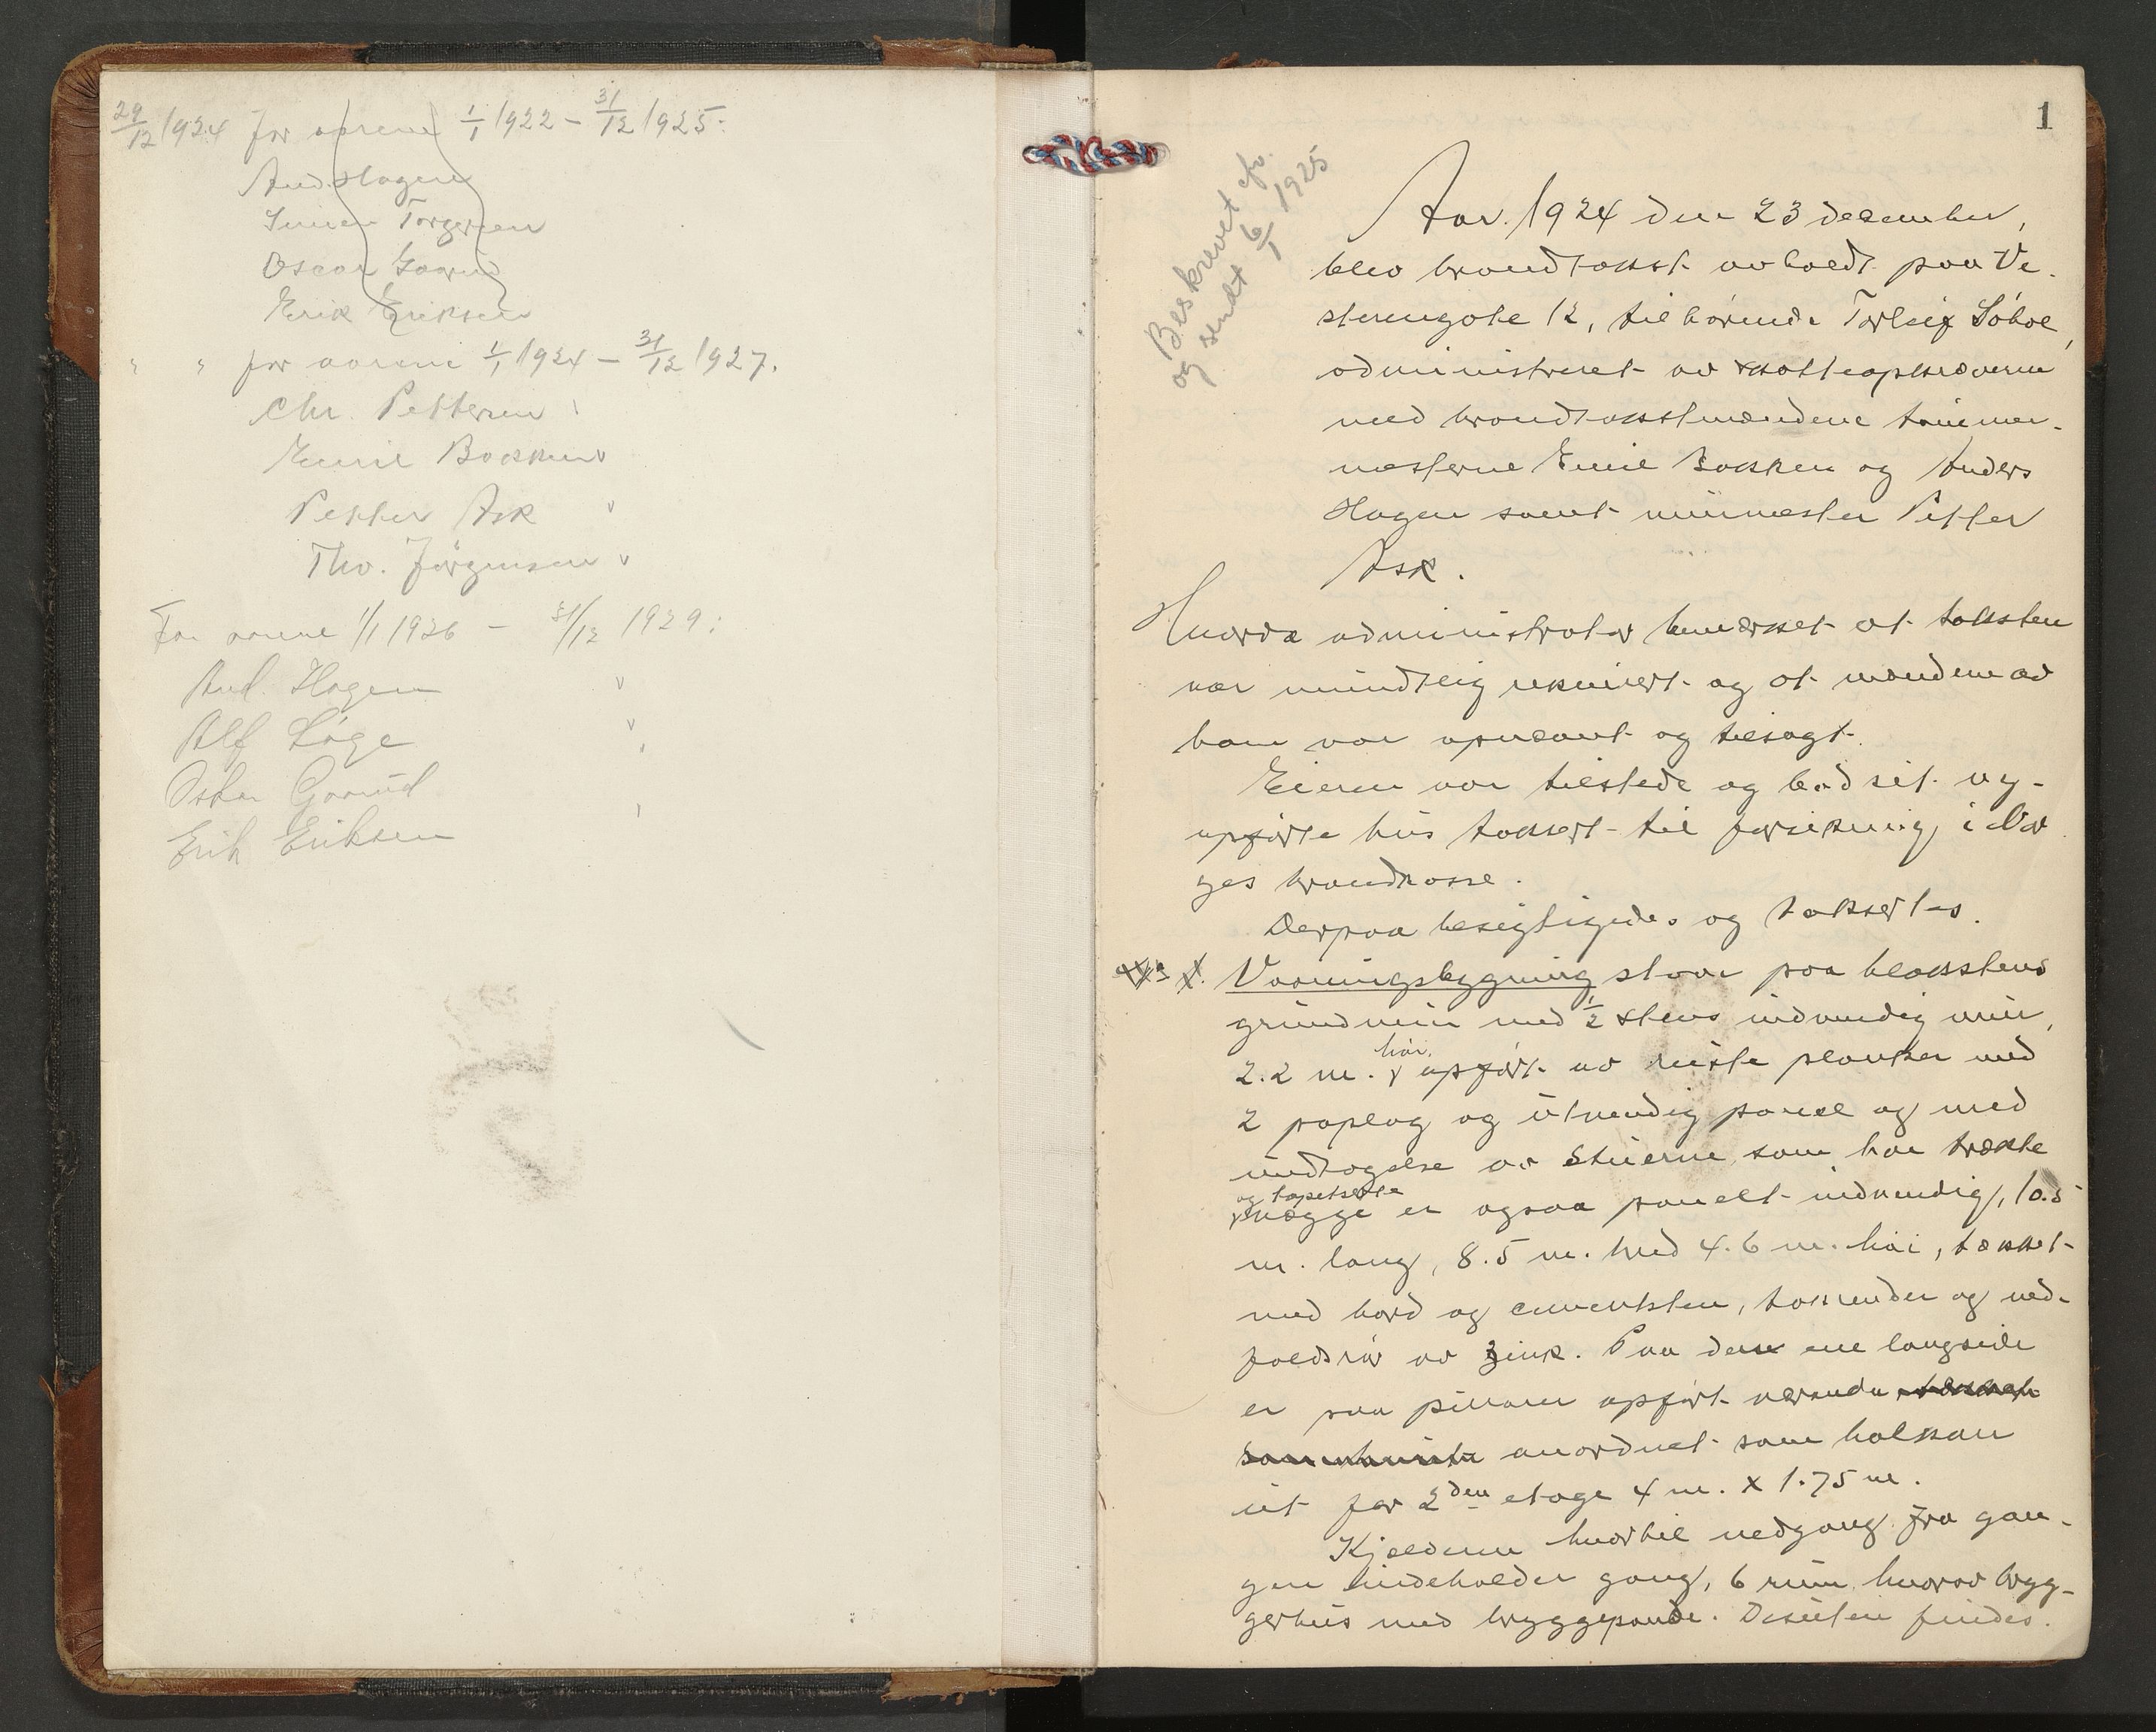 29/12 1924 for aarene 1/1 1922 – 31/12 1925:
And. Hagen
Simen Torgersen
Oscar Gaarud
Erik Eriksen
" " for aarene 1/1 1924 – 31/12 1927.
Chr. Pettersen
Emil Bakken v
Petter Ask v
Thv. Jörgensen v
For aarene 1/1 1926 – 31/12 1929:
And. Hagen v
Alf Löge v
Oskar Gaarud
Erik Eriksen
1
Beskrevet efr.
og sendt 6/1 1925
Aar. 1924 den 23 desember,
blev brandtakst avholdt paa Ve-
sterengate 12, tilhörende Torleif Söbol,
administreret av skatteopkræveren
med brandtakstmændene tømmer-
mesterne Emil Bakken og Anders
Hagen samt murmester Petter
Ask.
Hvorda administrator bemerket at taksten
var mundtlig rekvirert og at mændene av
ham var opnævnt og tilsagt.
Eieren var tilstede og bad sit ny-
opførte hus taksert til forsikring i Nor
ges brandkasse.
Derpaa besigtigedes og taksertes.
Vaaningsbygning staar paa blokstens
grundmur med 1/2 stens indvendig mur,
2.2 m. høi, opført av reiste planker med
2 paplag og utvendig panel og med
undtagelse av stuerne som har trækte
og tapetserte
vægge er ogsaa panelt indvendig, 10.5
m. lang, 8.5 m. bred 4.6 m. høi, tækket
med bord og cementsten, takrender og ned-
faldsrør av zink. Paa den ene langside
er paa pillarer opført veranda
anordnet som balkon
ut for 2den etage 4 m. x 1.75 m.
Kjelderen hvortil nedgang fra gan-
gen indeholder gang, 6 rum hvorav bryg-
gerhus med bryggepande. Desuten findes.